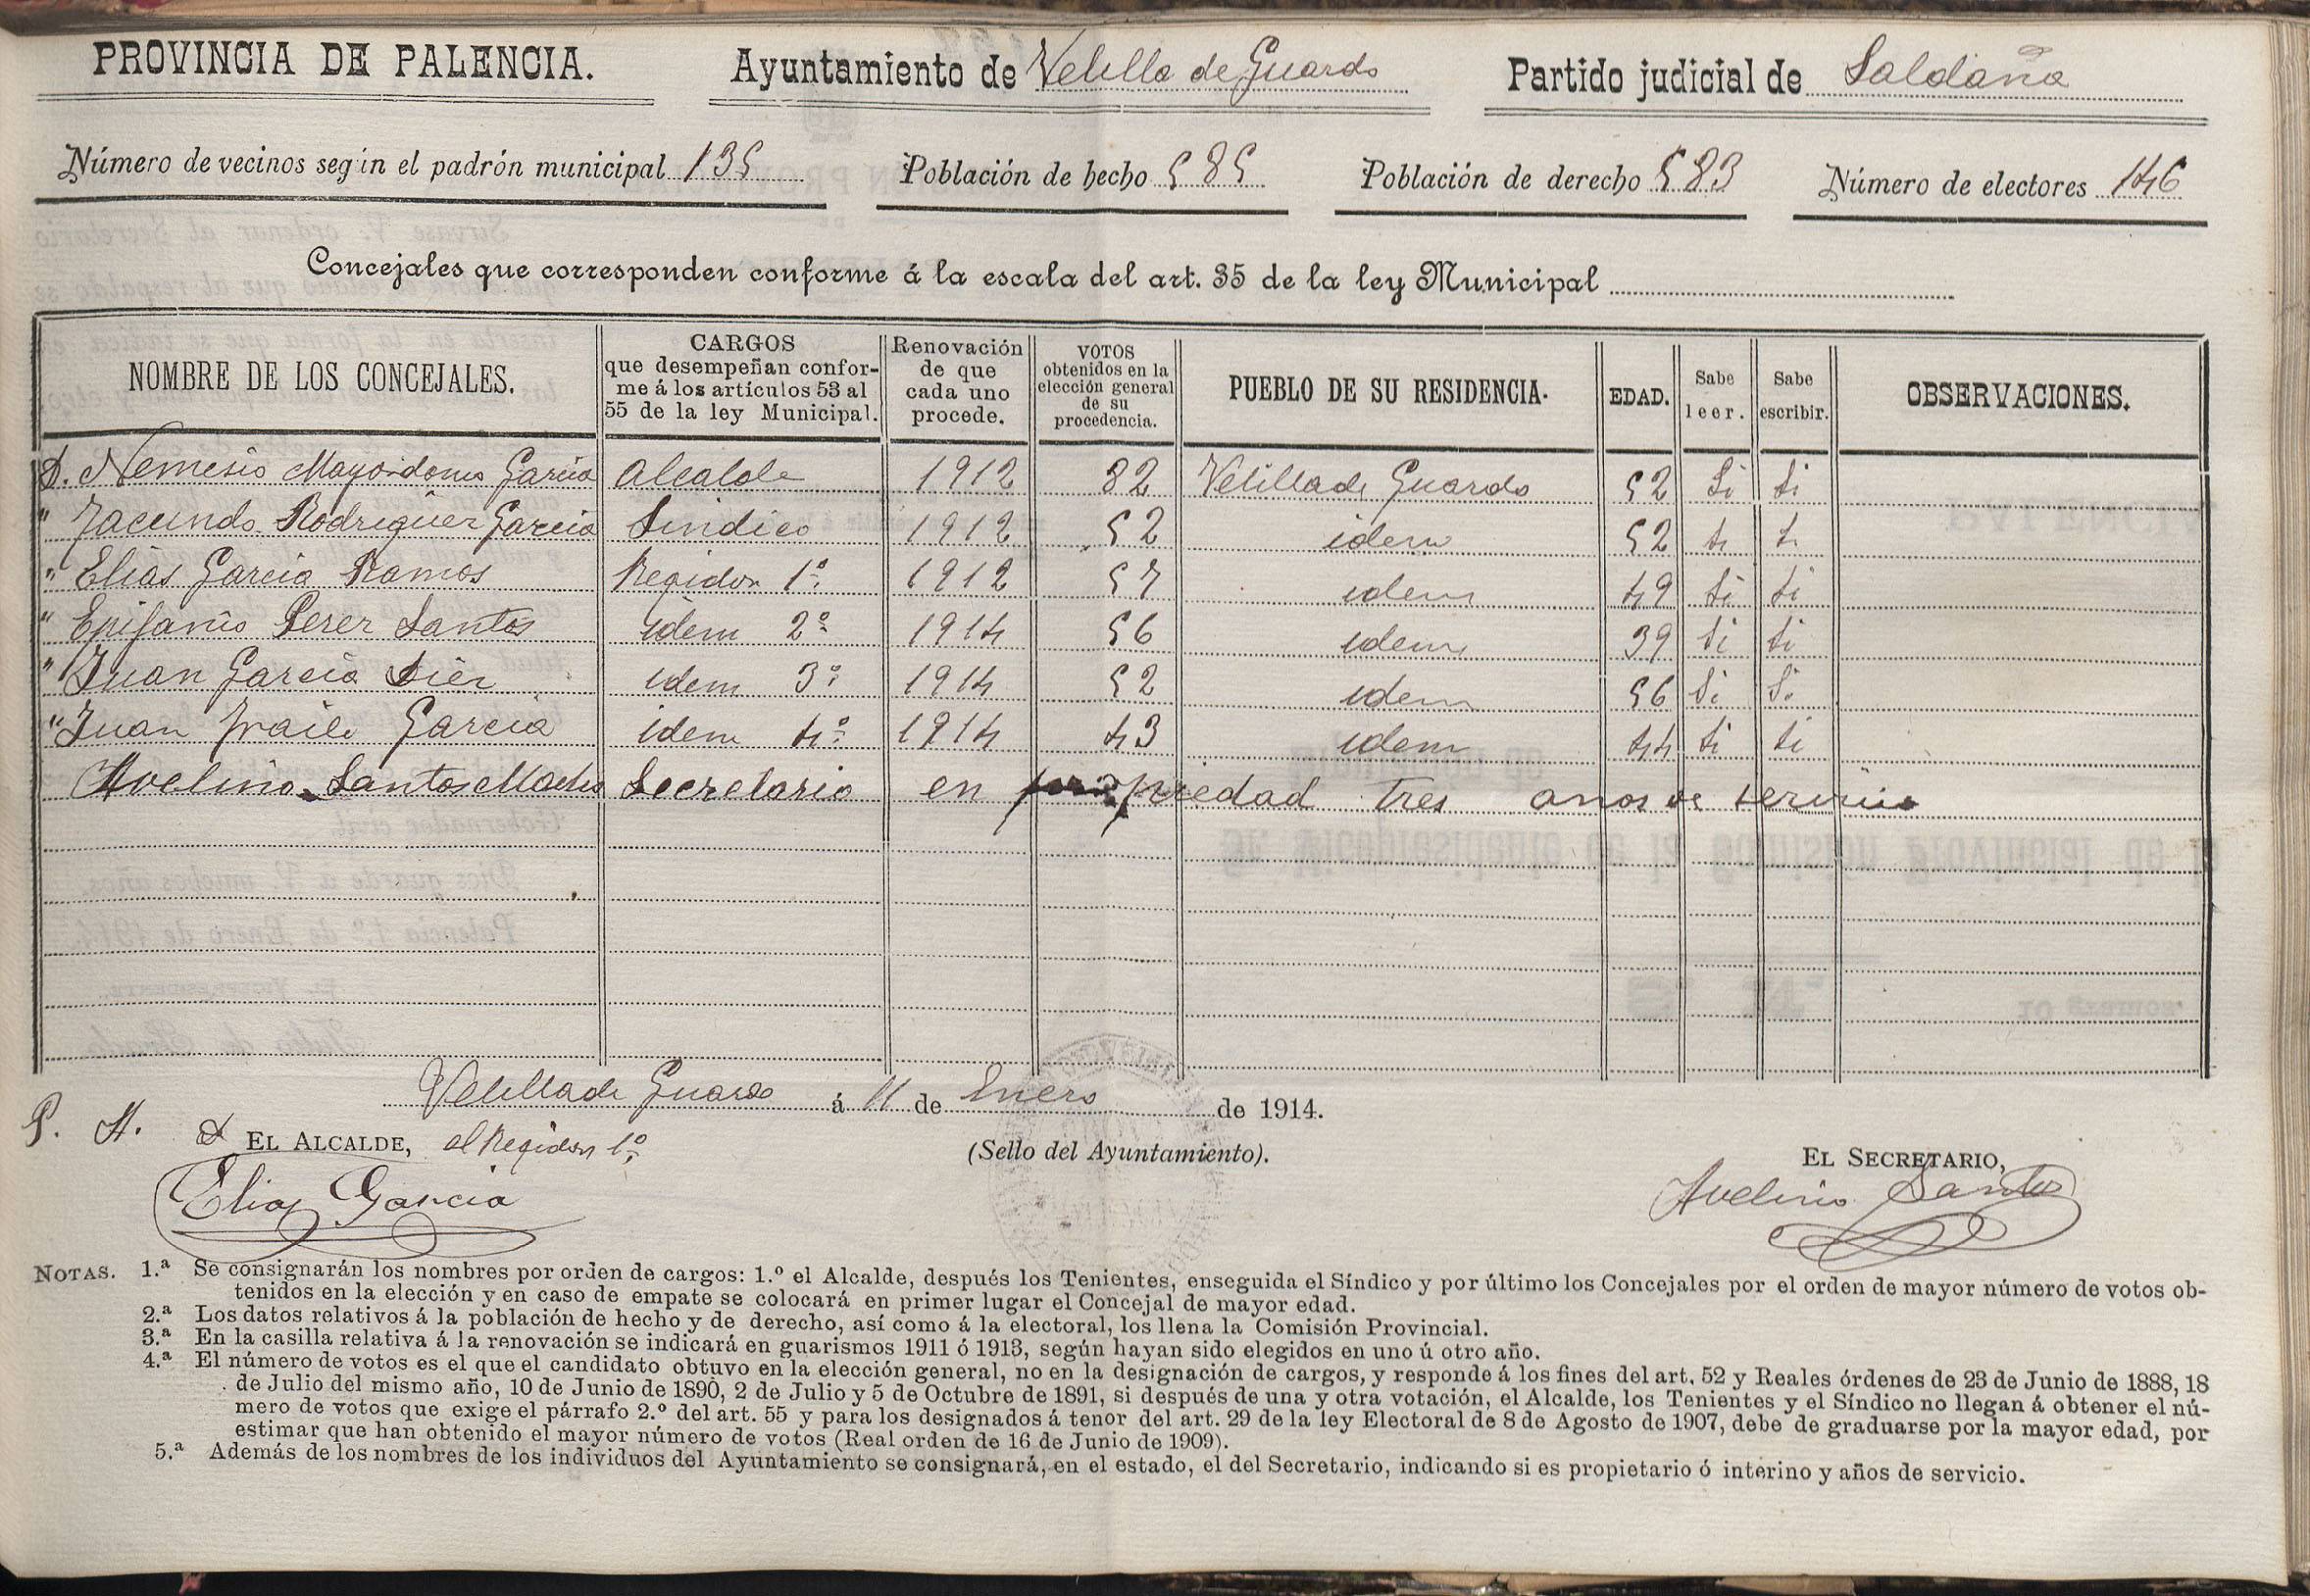 PROVINCIA DE PALENCIA. Ayuntamiento de Velilla de Guardo Partido judicial de Saldaña
Número de vecinos según el padrón municipal 135 Población de hecho 585 Población de derecho 583 Número de electores 146
Concejales que corresponden conforme á la escala del art. 35 de la ley Municipal
NOMBRE DE LOS CONCEJALES. CARGOS que desempeñan conforme á los artículos 53 al 55 de la ley Municipal. Renovación de que cada uno procede. VOTOS obtenidos en la elección general de su procedencia. PUEBLO DE SU RESIDENCIA. EDAD. Sabe leer. Sabe escribir. OBSERVACIONES.
D. Nemesio Mayordomo Garcia Alcalde 1912 82 Velilla de Guardo 52 Si si
" Facundo Rodriguez Garcia Sindico 1912 52 idem 52 si si
" Elias Garcia Ramos Regidor 1º 1912 57 idem 49 si si
" Epifanio Perez Santos idem 2º 1914 56 idem 39 si si
" Juan Garcia Diez idem 3º 1914 52 idem 56 Si Si
" Juan Fraile Garcia idem 4º 1914 43 idem 44 si si
Avelino Santos Macho Secretario en propiedad tres años de servicio
Velilla de Guardo á 11 de Enero de 1914.
P. A. EL ALCALDE, el Regidor 1º (Sello del Ayuntamiento). EL SECRETARIO,
Elias Garcia Avelino Santos
NOTAS. 1.ª Se consignarán los nombres por orden de cargos: 1.º el Alcalde, después los Tenientes, enseguida el Síndico y por último los Concejales por el orden de mayor número de votos ob-
tenidos en la elección y en caso de empate se colocará en primer lugar el Concejal de mayor edad.
2.ª Los datos relativos á la población de hecho y de derecho, así como á la electoral, los llena la Comisión Provincial.
3.ª En la casilla relativa á la renovación se indicará en guarismos 1911 ó 1913, según hayan sido elegidos en uno ú otro año.
4.ª El número de votos es el que el candidato obtuvo en la elección general, no en la designación de cargos, y responde á los fines del art. 52 y Reales órdenes de 23 de Junio de 1888, 18
de Julio del mismo año, 10 de Junio de 1890, 2 de Julio y 5 de Octubre de 1891, si después de una y otra votación, el Alcalde, los Tenientes y el Síndico no llegan á obtener el nú-
mero de votos que exige el párrafo 2.º del art. 55 y para los designados á tenor del art. 29 de la ley Electoral de 8 de Agosto de 1907, debe de graduarse por la mayor edad, por
estimar que han obtenido el mayor número de votos (Real orden de 16 de Junio de 1909).
5.ª Además de los nombres de los individuos del Ayuntamiento se consignará, en el estado, el del Secretario, indicando si es propietario ó interino y años de servicio.